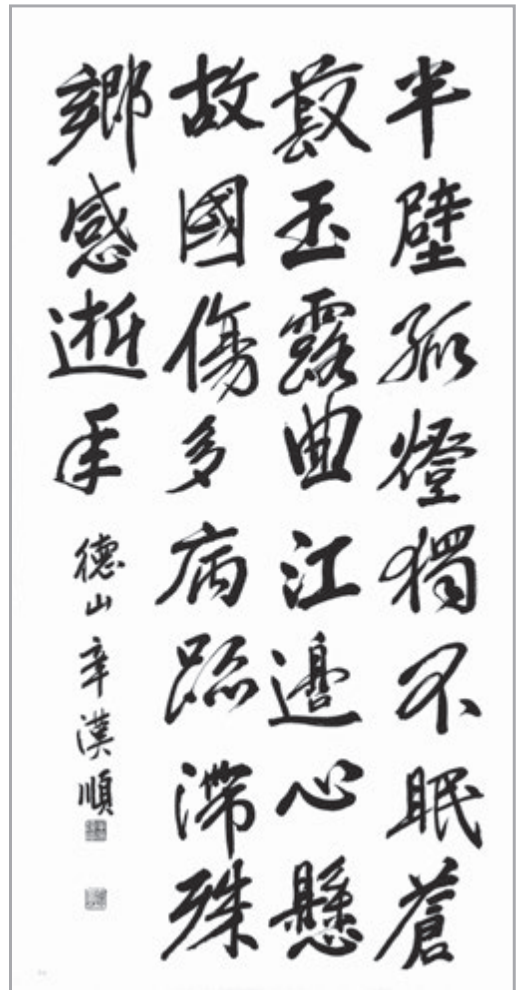 半壁孤燈獨不眠蒼
葭玉露曲江邊心懸
故國傷多病跡滯殊
鄉感逝年
德山辛漢順